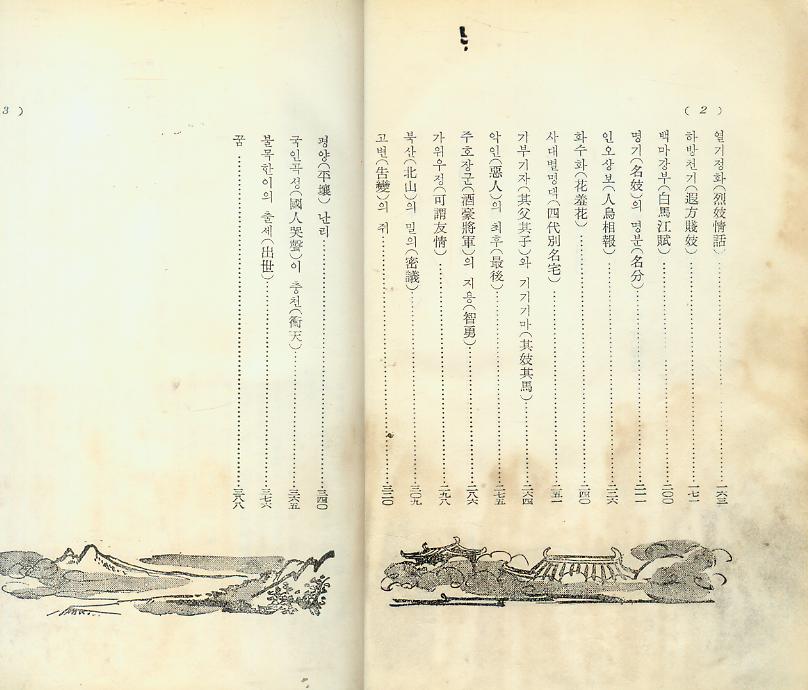 ( 2 )
열기정화(烈妓情話)……一六三
하방천기(遐方賤妓)……一七一
백마강부(白馬江賦)……二〇〇
명기(名妓)의 명분(名分)……二一一
인오상보(人烏相報)……二二六
화수화(花羞花)……二四〇
사대별명댁(四代別名宅)……二五一
기부기자(其父其子)와 기기기마(其妓其馬)……二六四
악인(惡人)의 최후(最後)……二七五
주호장군(酒豪將軍)의 지용(智勇)……二八六
가위우정(可謂友情)……二九八
북산(北山)의 밀의(密議)……三〇九
고변(告變)의 쥐……三二〇
3 )
평양(平壤) 난리……三四〇
국인곡성(國人哭聲)이 충천(衝天)……三六五
불목한이의 출세(出世)……三七六
꿈……三八八